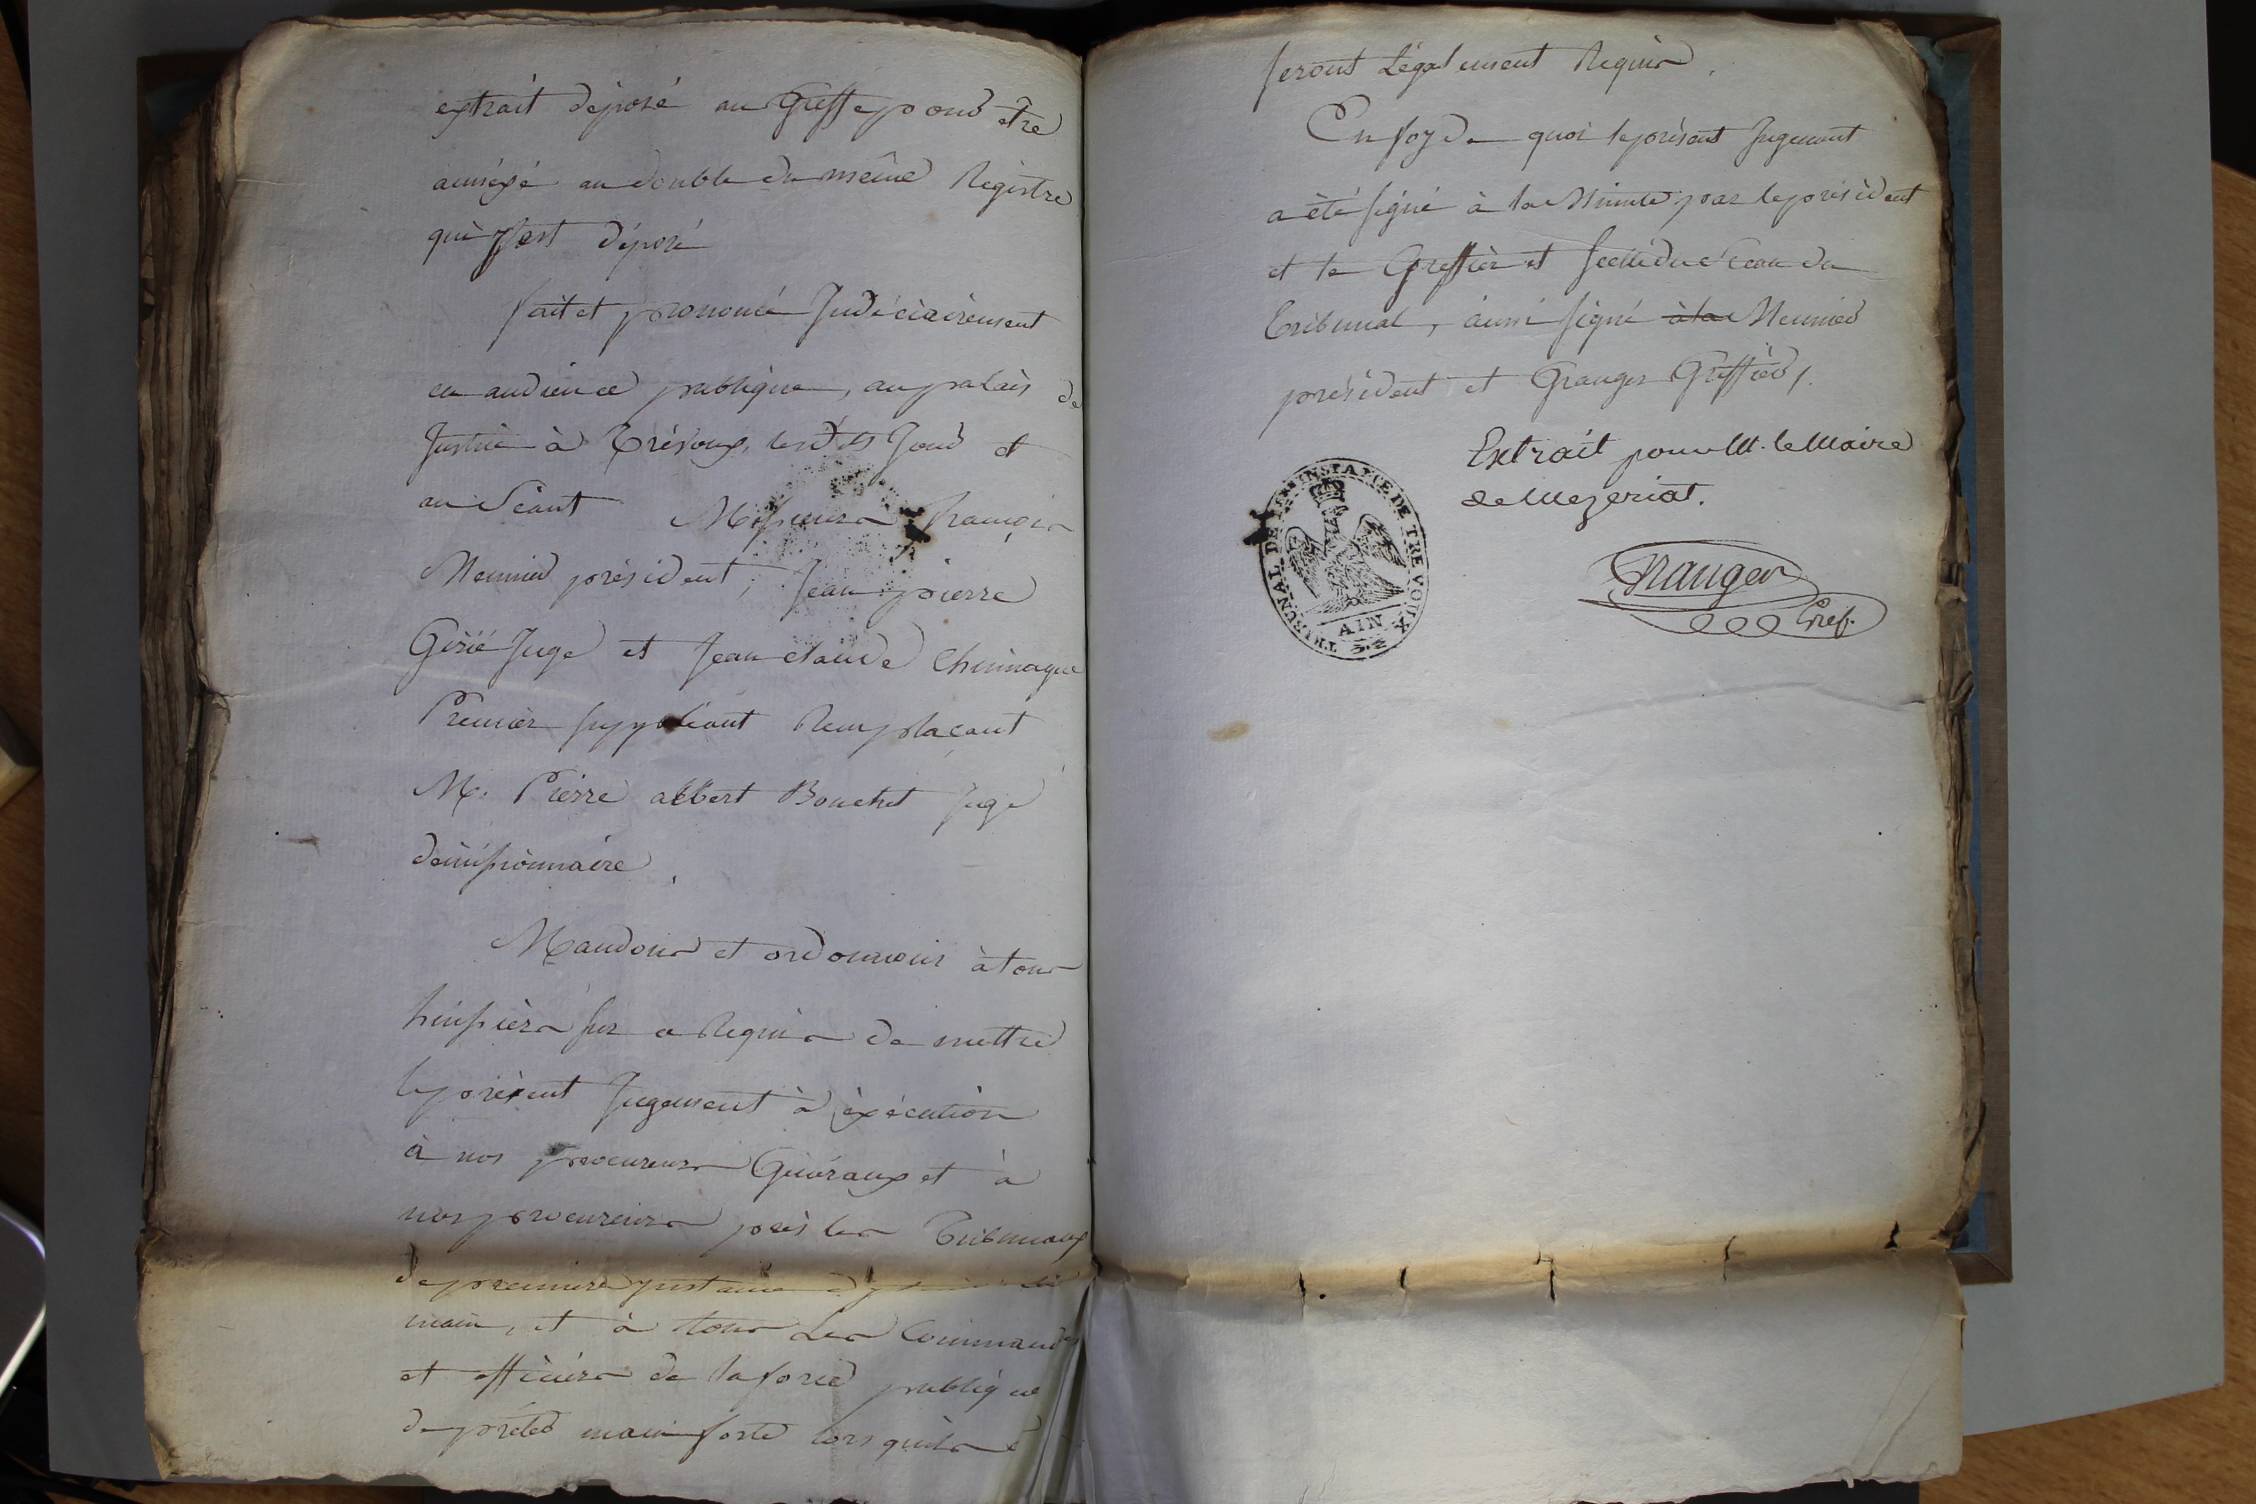 extrait déposé au Greffe pour être
annéxé au double du même Registre
qui y est déposé
fait et prononcé Judiciairement
en audience publique, au palais de
Justice à Trévoux, lesdits Jour et
an Séant Messieurs François
Meunier président, Jean pierre
Juge et Jean claude
Premier suppléant Remplaçant
M. Pierre albert Bouchet Juge
démissionnaire,
Mandons et ordonnons à tous
huissiers sur ce Requis de mettre
le présent Jugement à éxécution
à nos procureurs Généraux et à
nos procureurs près les Tribunaux
de premiere Instance d'y tenir la
main, et à tous Les Commandts
et officiers de la force publique
de prêter main forte lorsquils
seront Légalement Requis.
En foy de quoi le présent Jugement
a été signé à la Minute par le président
et le Greffier et scellé du Sceau du
Tribunal, ainsi signé à la Meunier
président et Granger Greffier,.
Extrait pour M. le Maire
de Mezeriat.
TRIBUNAL DE 1ERE INSTANCE DE TREVOUX
AIN
Granger
Gref.